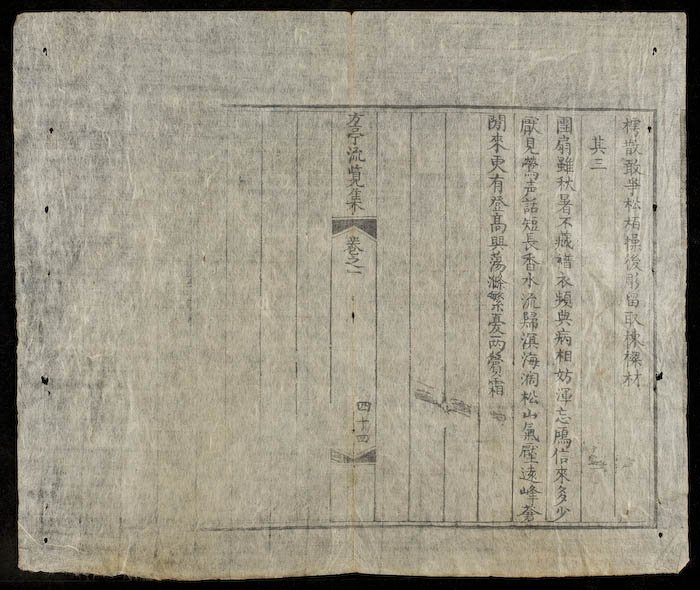 樗散敢爭松栢操後彫留取棟樑材
其三
團扇雖秋暑不藏襤衣頻與病相妨渾忘鴈信來多少
厭見鶯声話短長香水流歸溟海濶松山氣壓遠峰蒼
閒來更有登高興蕩滌繁憂兩鬢霜
方亭流覽集
卷之一
四十四